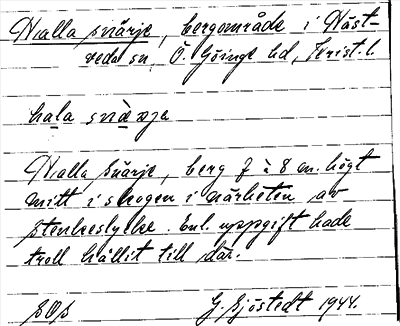 Halla snärje, bergområde i Näst-
veda sn, Ö. Göinge hd, Krist. l.
hala snärje
Halla snärje, berg 7 à 8 m. högt
mitt i skogen i närheten av
stenkeslycke. Enl. uppgift hade
troll hållit till där.
G. Sjöstedt 1944.